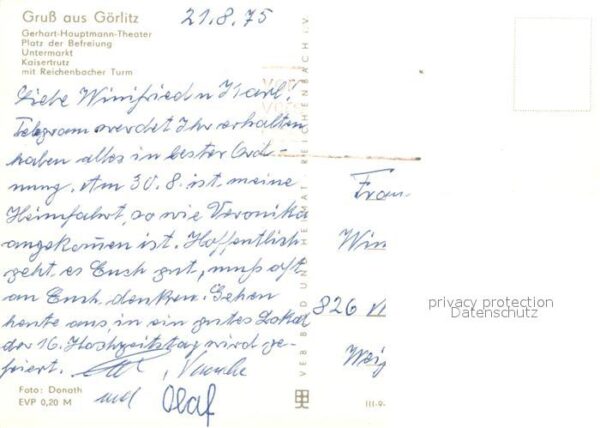 Gruß aus Görlitz
21.8.75
Gerhart-Hauptmann-Theater
Platz der Befreiung
Untermarkt
Kaisertrutz
mit Reichenbacher Turm
Liebe Winifried u Karl!
Telegram werdet Ihr erhalten
haben alles in bester Ord-
nung. Am 30.8. ist meine
Heimfahrt, so wie Veronika
angekommen ist. Hoffentlich
geht es Euch gut, muß oft
an Euch denken. Gehen
heute aus, in ein gutes Lokal
der 16. Hochzeitstag wird ge-
feiert.
und Olaf
Foto: Donath
EVP 0,20 M
VEB BILD UND HEIMAT REICHENBACH i.V.
Frau
Win
826
Weig
III-9-
privacy protection
Datenschutz